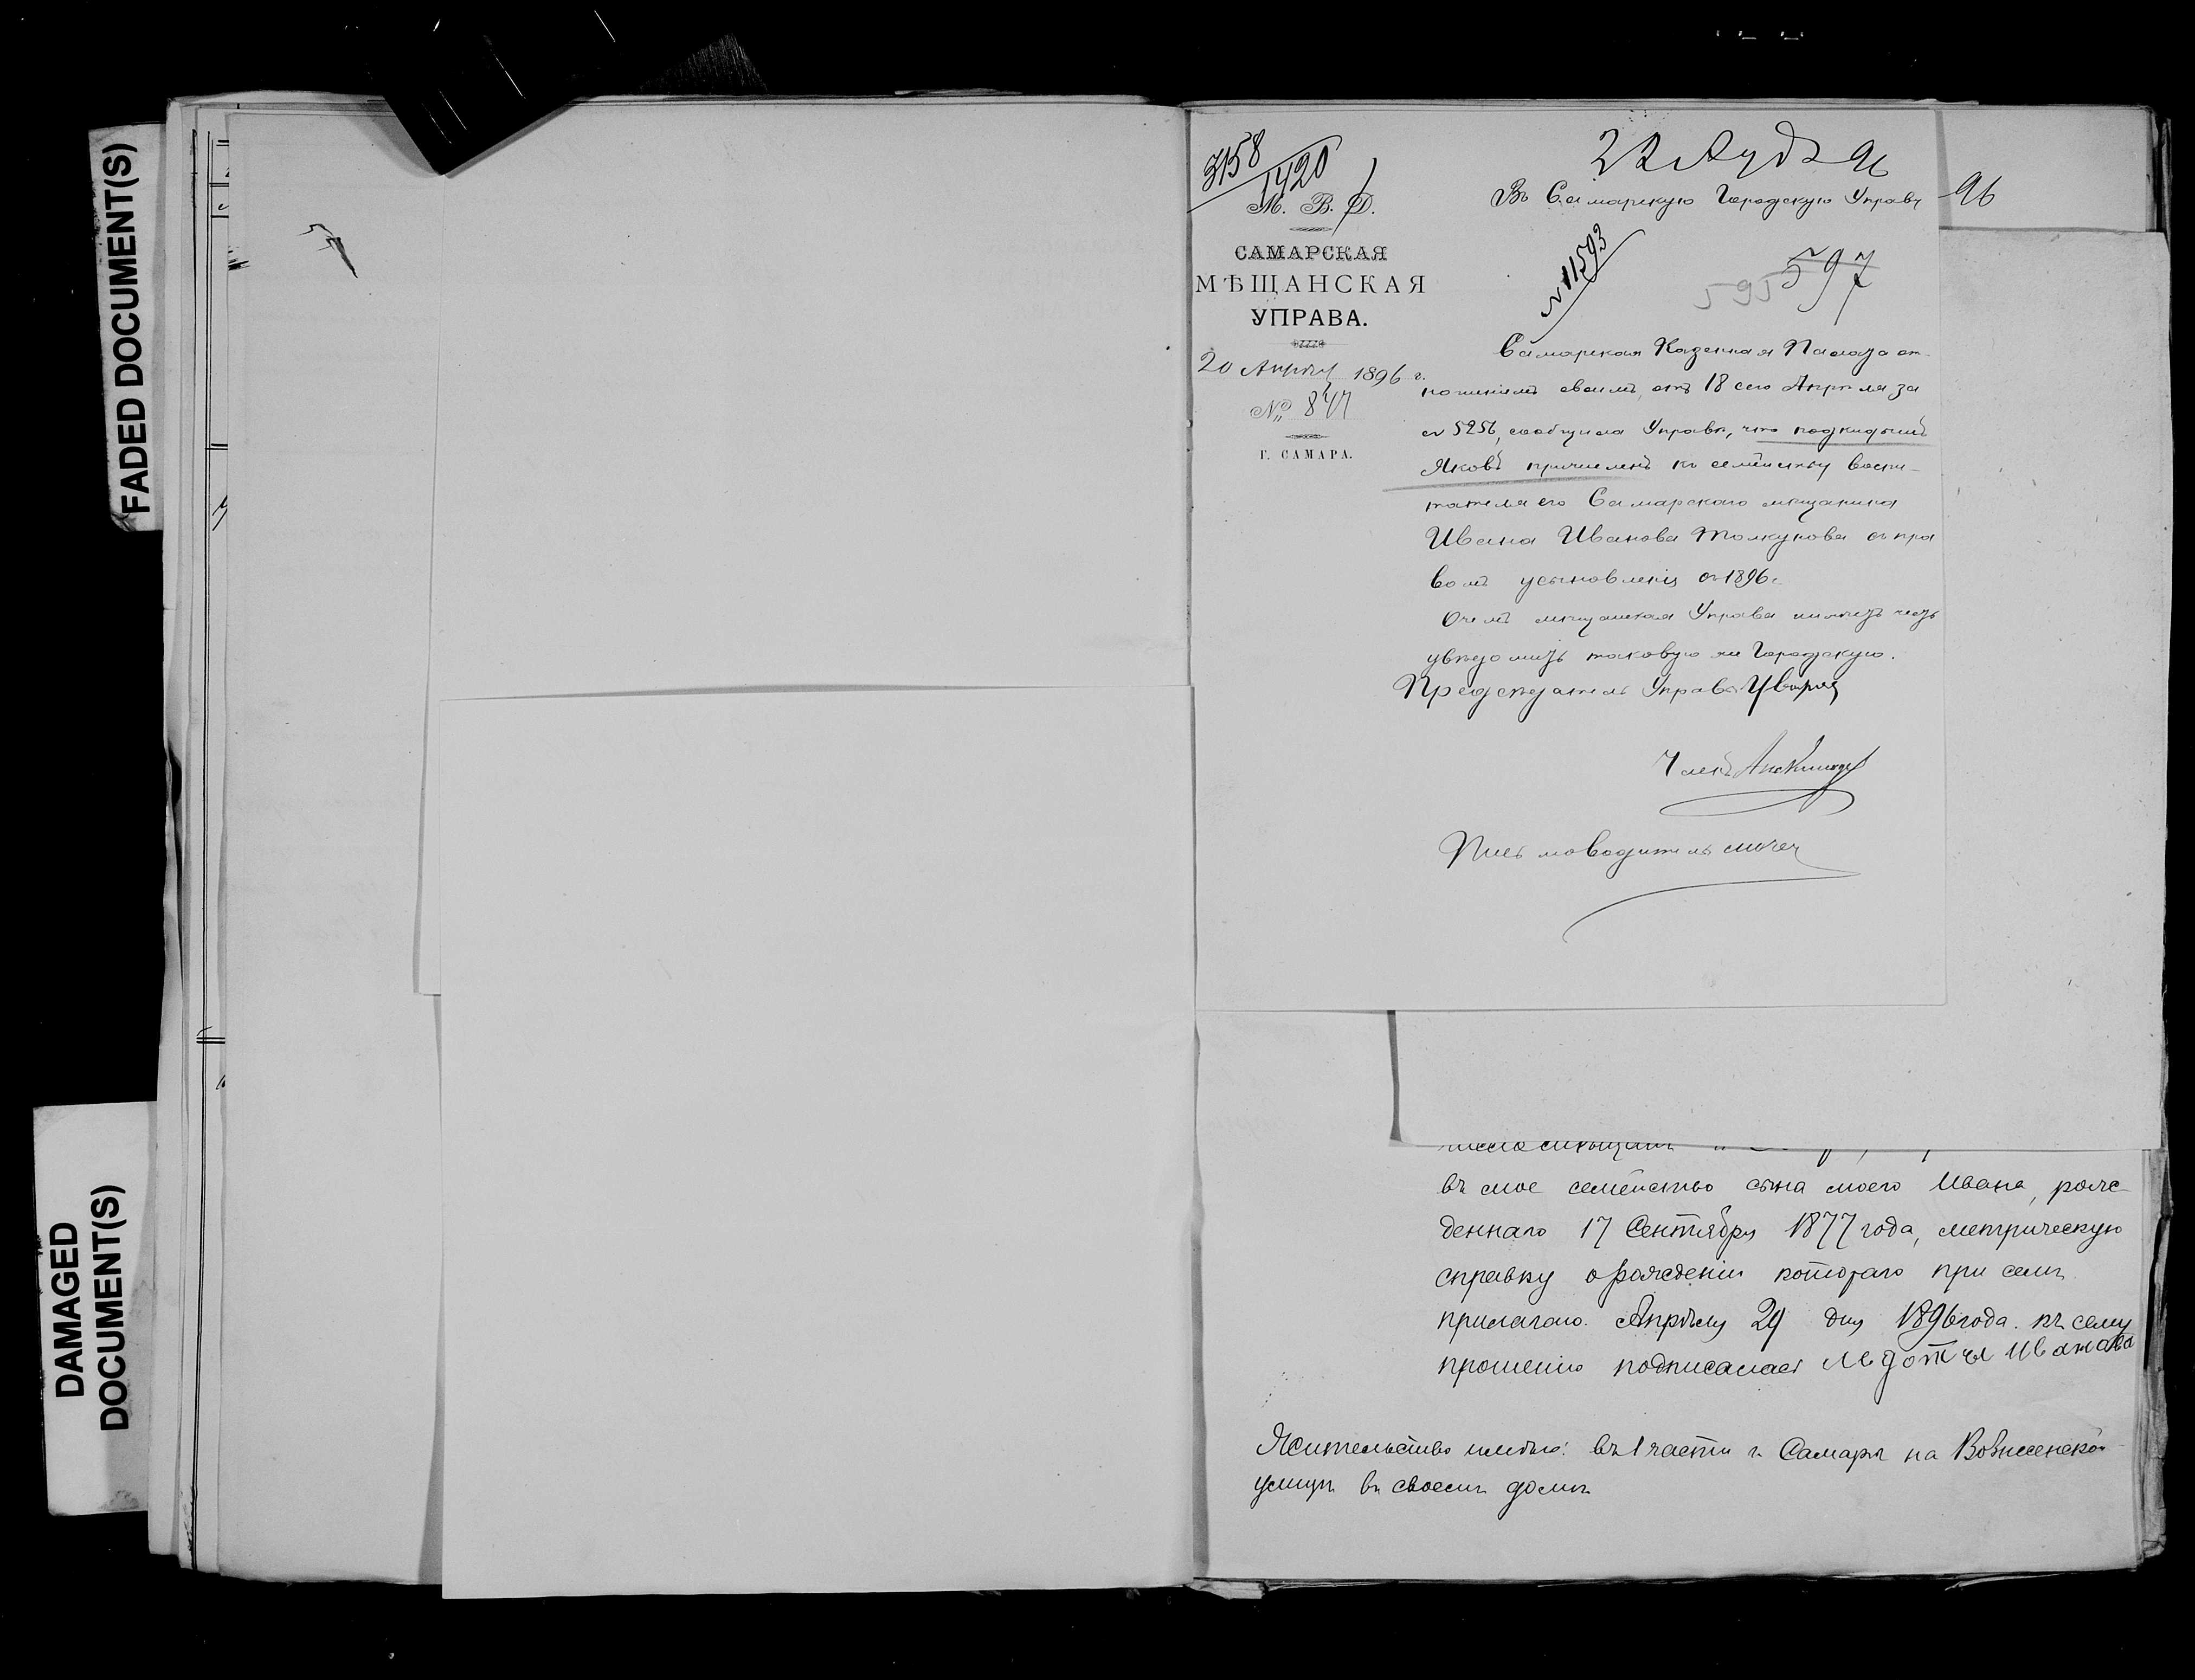 FADED DOCUMENT(S)
DAMAGED
DOCUMENT(S)
3158
1420
М. В. Д.
САМАРСКАЯ
МѢЩАНСКАЯ
УПРАВА.
20 Апрѣля 1896 г.
№ 847
Г. САМАРА.
96
Въ Самарскую Городскую Управу
№ 11593
597
595
Самарская Казенная Палата от-
ношеніемъ своимъ, отъ 18 сего Апрѣля за
№ 5256, сообщила Управѣ, что подкидышъ
Яковъ причисленъ къ семейству воспи-
тателя его Самарскаго мѣщанина
Ивана Иванова Толкунова съ пра
вомъ усыновленія съ 1896 г.
О чемъ мѣщанская Управа имѣетъ честь
увѣдомить таковую же Городскую.
Предсѣдатель Управы
Членъ
Письмоводитель
въ мое семейство сына моего Ивана, рож-
деннаго 17 Сентября 1877 года, метрическую
справку о рожденіи котораго при семъ
прилагаю. Апрѣля 29 дня 1896 года. къ сему
прошенію подписалась Иванова
Жительство имѣю: въ 1 части г. Самары на Вознесенской
улицѣ въ своемъ домѣ